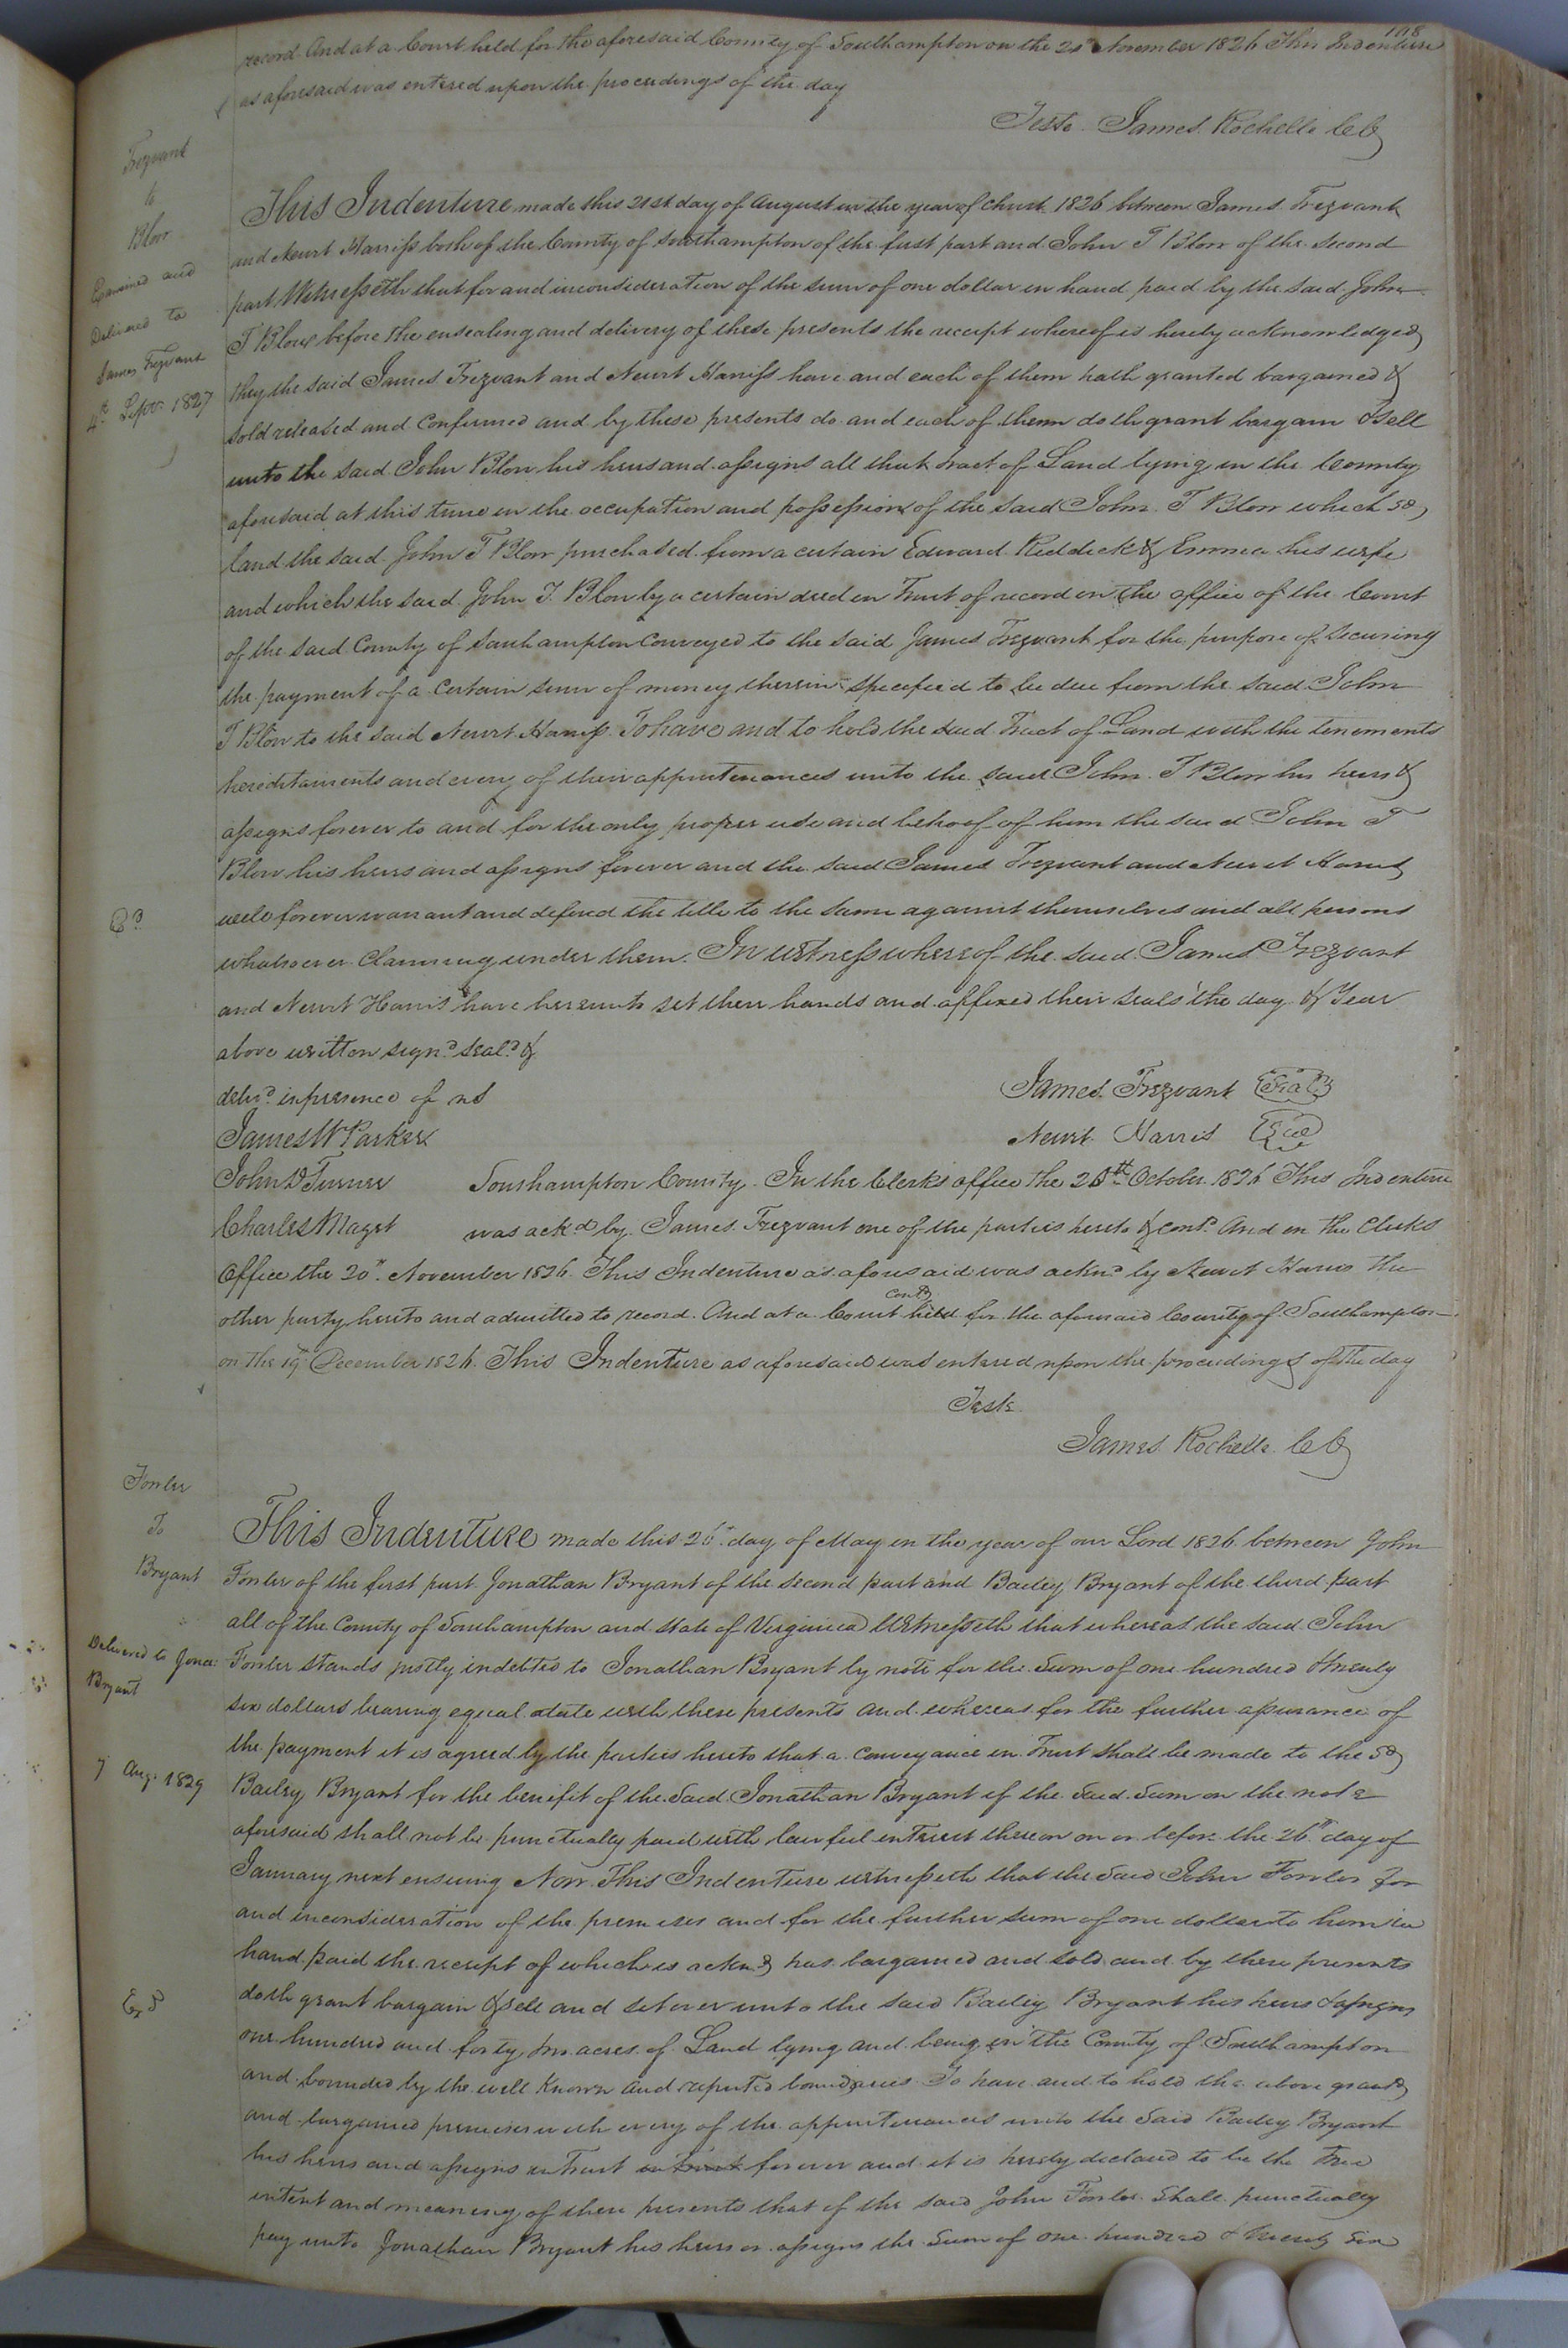 108
record And at a Court held for the aforesaid County of Southampton on the 20th November 1826 This Indenture
as aforesaid was entered upon the proceedings of the day
Teste James Rochelle CC
Trezvant
to
Blow
Examined and
Delivered to
James Trezvant
4th Septr 1827
This Indenture made this 21st day of August in the year of Christ 1826 between James Trezvant
and Newit Harriss both of the County of Southampton of the first part and John T Blow of the second
part Witnesseth that for and inconsideration of the sum of one dollar in hand paid by the said John
T Blow before the ensealing and delivery of these presents the receipt whereof is hereby acknowledged
they the said James Trezvant and Newit Harriss have and each of them hath granted bargained &
sold released and confirmed and by these presents do and each of them doth grant bargain & sell
unto the said John Blow his heirs and assigns all that tract of Land lying in the County
aforesaid at this time in the occupation and possession of the said John T Blow which sd
land the said John T Blow purchased from a certain Edward Riddick & Emma his wife
and which the said John T. Blow by a certain deed in Trust of record in the office of the Court
of the said County of Southampton conveyed to the said James Trezvant for the purpose of securing
the payment of a certain sum of money therein specified to be due from the said John
T Blow to the said Newit Harriss To have and to hold the said Tract of Land with the tenements
hereditaments and every of their appurtenances unto the said John T Blow his heirs &
assigns forever to and for the only proper use and behoof of him the said John T
Blow his heirs and assigns forever and the said James Trezvant and Newit Harris
will forever warrant and defend the title to the same against themselves and all persons
whatsoever claiming under them. In witness whereof the said James Trezvant
and Newit Harris have hereunto set their hands and affixed their seals the day & year
above written signd seald &
delivd in presence of us
James Trezvant Seal
James W Parker
Newit Harris Seal
John D Turner
Southampton County In the Clerks office the 20th October 1826 This Indenture
Charles Maget
was ackd by James Trezvant one of the parties hereto & contd And in the Clerks
Office the 20th November 1826 This Indenture as aforesaid was acknd by Newit Harris the
other party hereto and admitted to record. And at a Court contd held for the aforesaid County of Southampton
on the 19th December 1826 This Indenture as aforesaid was entered upon the proceedings of the day
Teste
James Rochelle CC
Fowler
To
Bryant
Delivered to Jona:
Bryant
7 Aug. 1829
Exd
This Indenture made this 26th day of May in the year of our Lord 1826 between John
Fowler of the first part Jonathan Bryant of the second part and Bailey Bryant of the third part
all of the County of Southampton and State of Virginia Witnesseth that whereas the said John
Fowler stands justly indebted to Jonathan Bryant by note for the sum of one hundred & twenty
six dollars bearing equal date with these presents and whereas for the further assurance of
the payment it is agreed by the parties hereto that a conveyance in Trust shall be made to the sd
Bailey Bryant for the benefit of the said Jonathan Bryant if the said sum on the note
aforesaid shall not be punctually paid with lawful interest thereon on or before the 26th day of
January next ensuing Now This Indenture witnesseth that the said John Fowler for
and inconsideration of the premises and for the further sum of one dollar to him in
hand paid the receipt of which is acknd has bargained and sold and by these presents
doth grant bargain & sell and set over unto the said Bailey Bryant his heirs & assigns
one hundred and forty two acres of Land lying and being in the County of Southampton
and bounded by the well known and reputed boundaries To have and to hold the above granted
and bargained premises with every of the appurtenances unto the said Bailey Bryant
his heirs and assigns in Trust in Trust forever and it is hereby declared to be the true
intent and meaning of these presents that if the said John Fowler shall punctually
pay unto Jonathan Bryant his heirs or assigns the sum of one hundred & twenty six